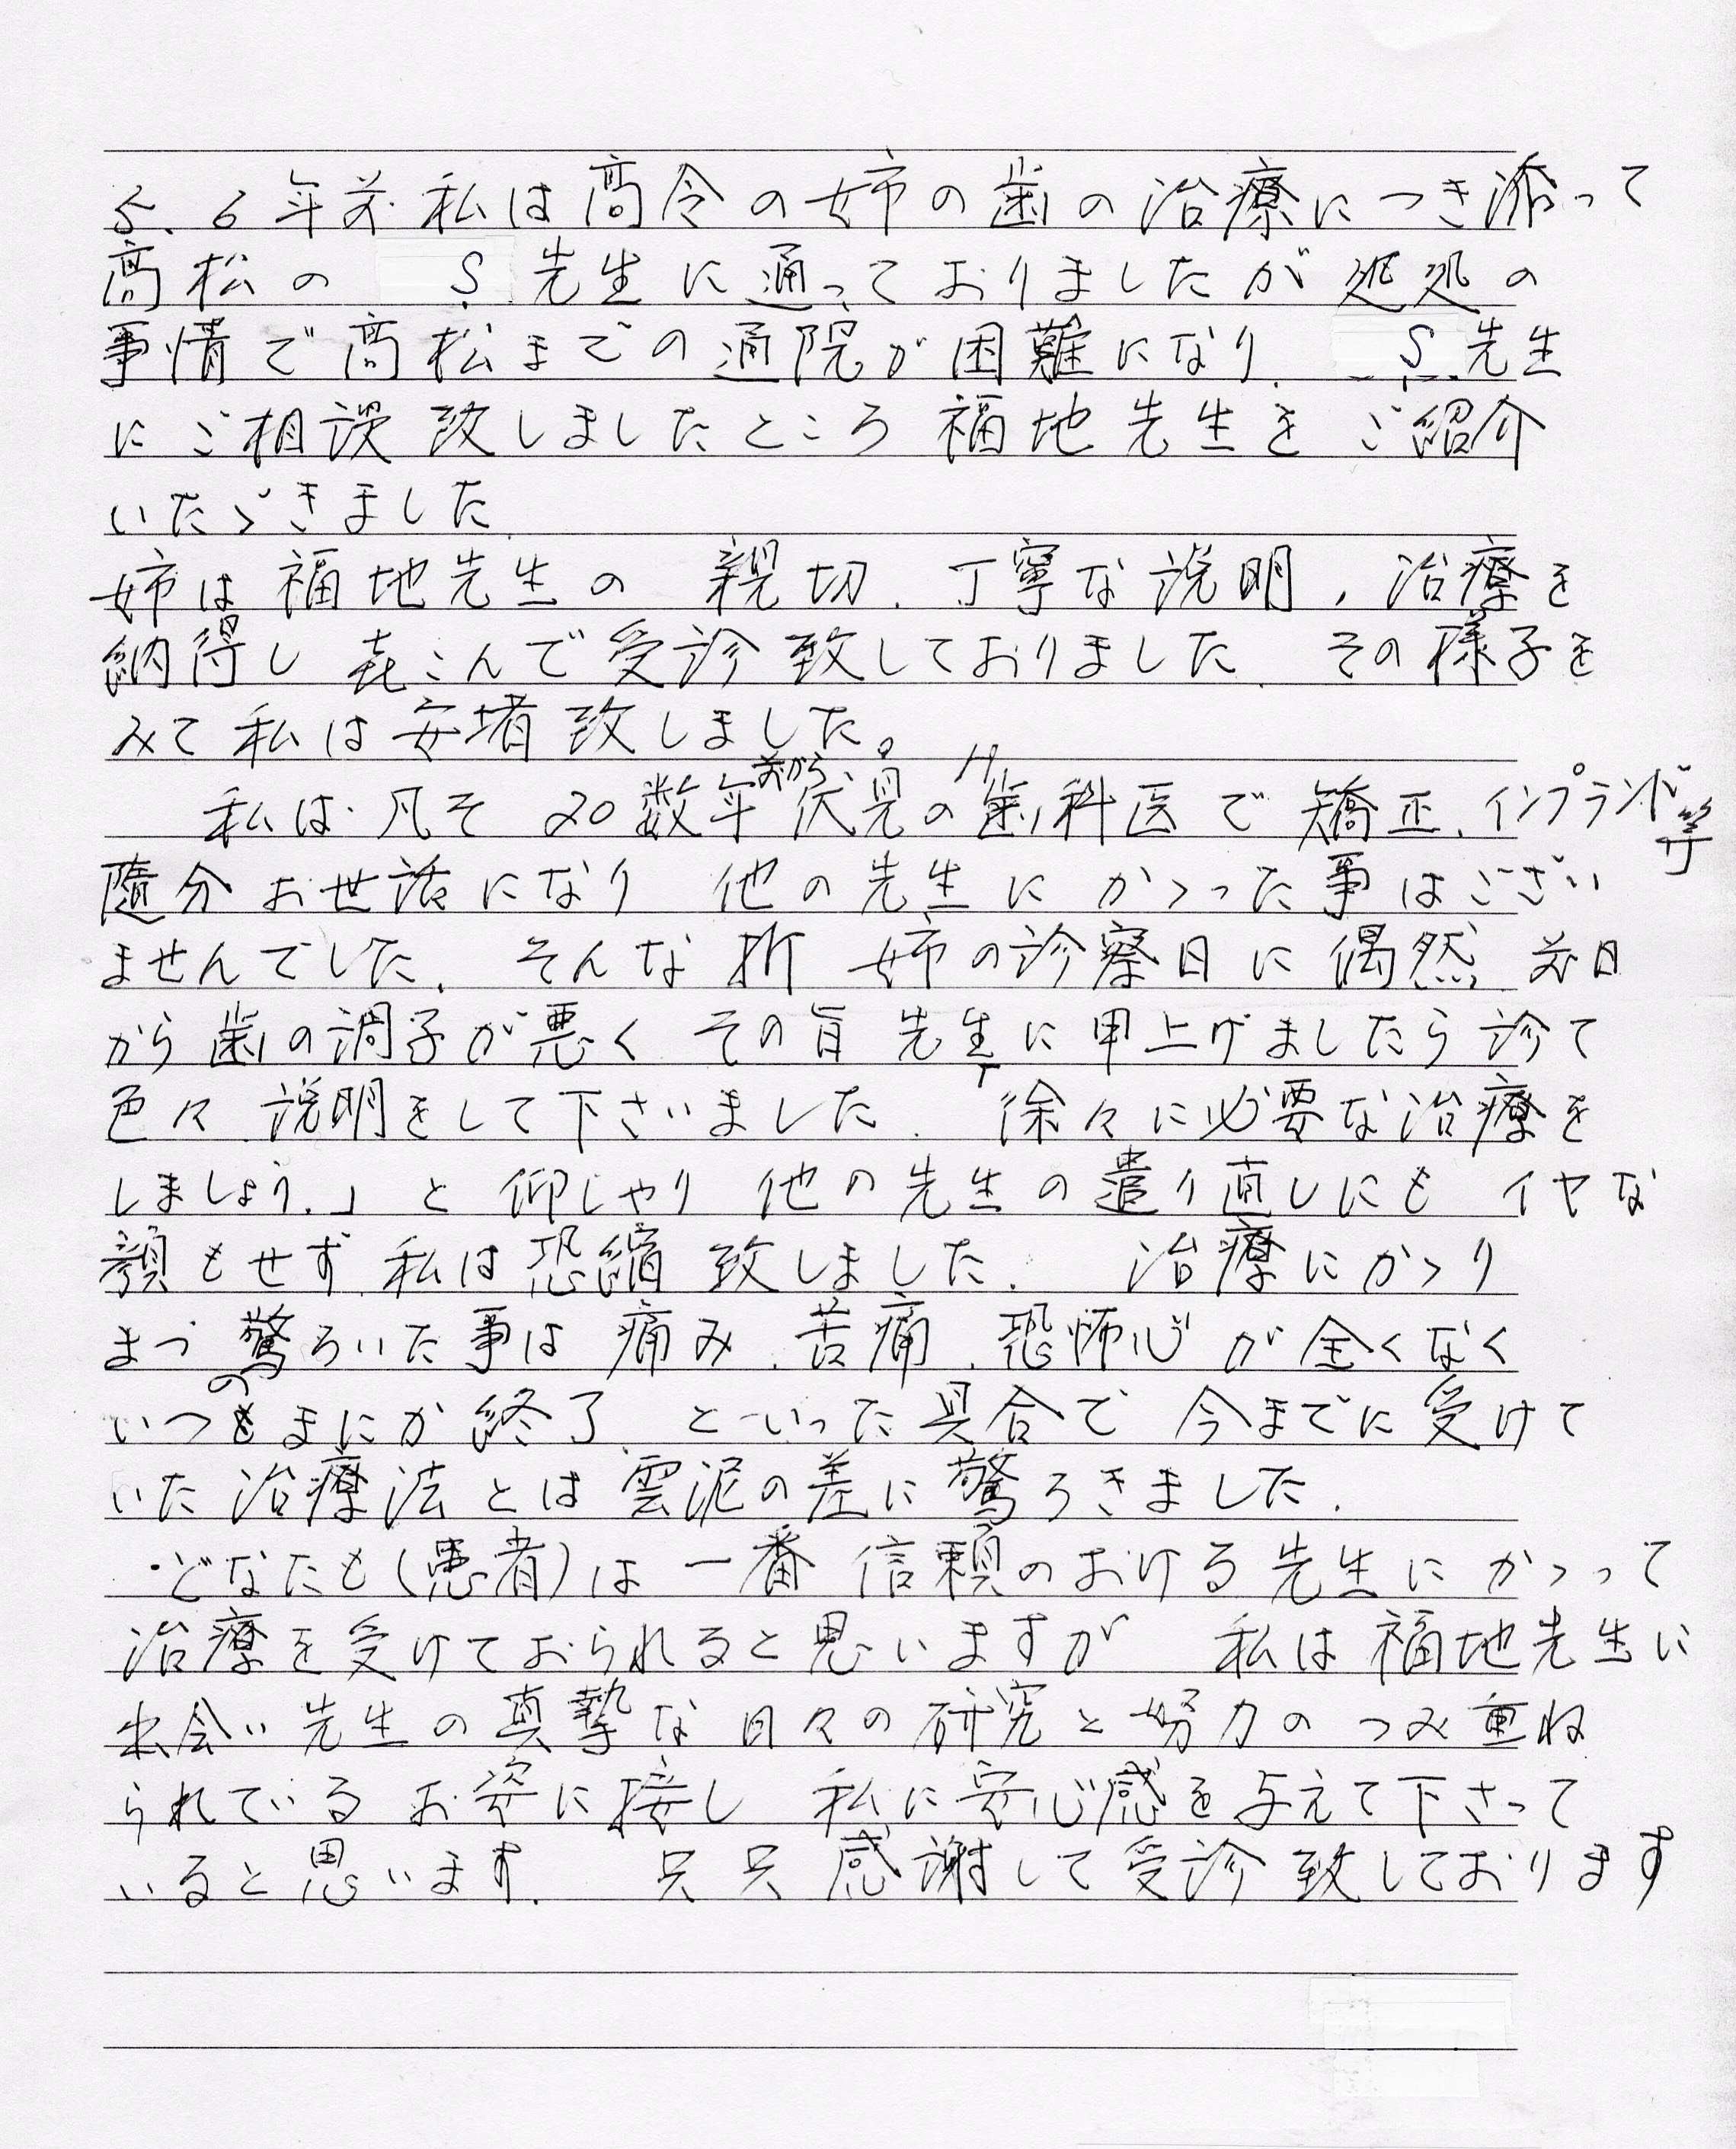 5.6年前 私は高令の姉の歯の治療につき添って
高松の S 先生に通っておりましたが 処処の
事情で高松までの通院が困難になり. S 先生
にご相談致しましたところ 福地先生を ご紹介
いたゞきました
姉は 福地先生の 親切. 丁寧な説明, 治療を
納得し 㐂こんで受診致しておりました. その様子を
みて私は安堵致しました。
私は 凡そ 20数年前から、伏見のH歯科医で 矯正. インプラント等
随分 お世話になり 他の先生に かゝった事はござい
ませんでした. そんな折 姉の診察日に偶然 前日
から歯の調子が悪く その旨 先生に申上げましたら診て
色々 説明をして下さいました. 「徐々に必要な治療を
しましょう.」と 仰しゃり 他の先生の遣り直しにも イヤな
顔もせず 私は恐縮致しました. 治療にかゝり
まづ 驚ろいた事は 痛み. 苦痛. 恐怖心が全くなく
いつのまにか終了. といった具合で 今までに受けて
いた治療法とは 雲泥の差に驚ろきました.
・どなたも(患者)は 一番 信頼のおける先生に かゝって
治療を受けておられると思いますが 私は福地先生に
出会い 先生の真摯な日々の研究と努力の つみ重ね
られている お姿に接し 私に安心感を与えて下さって
いると思います. 只只 感謝して受診致しております